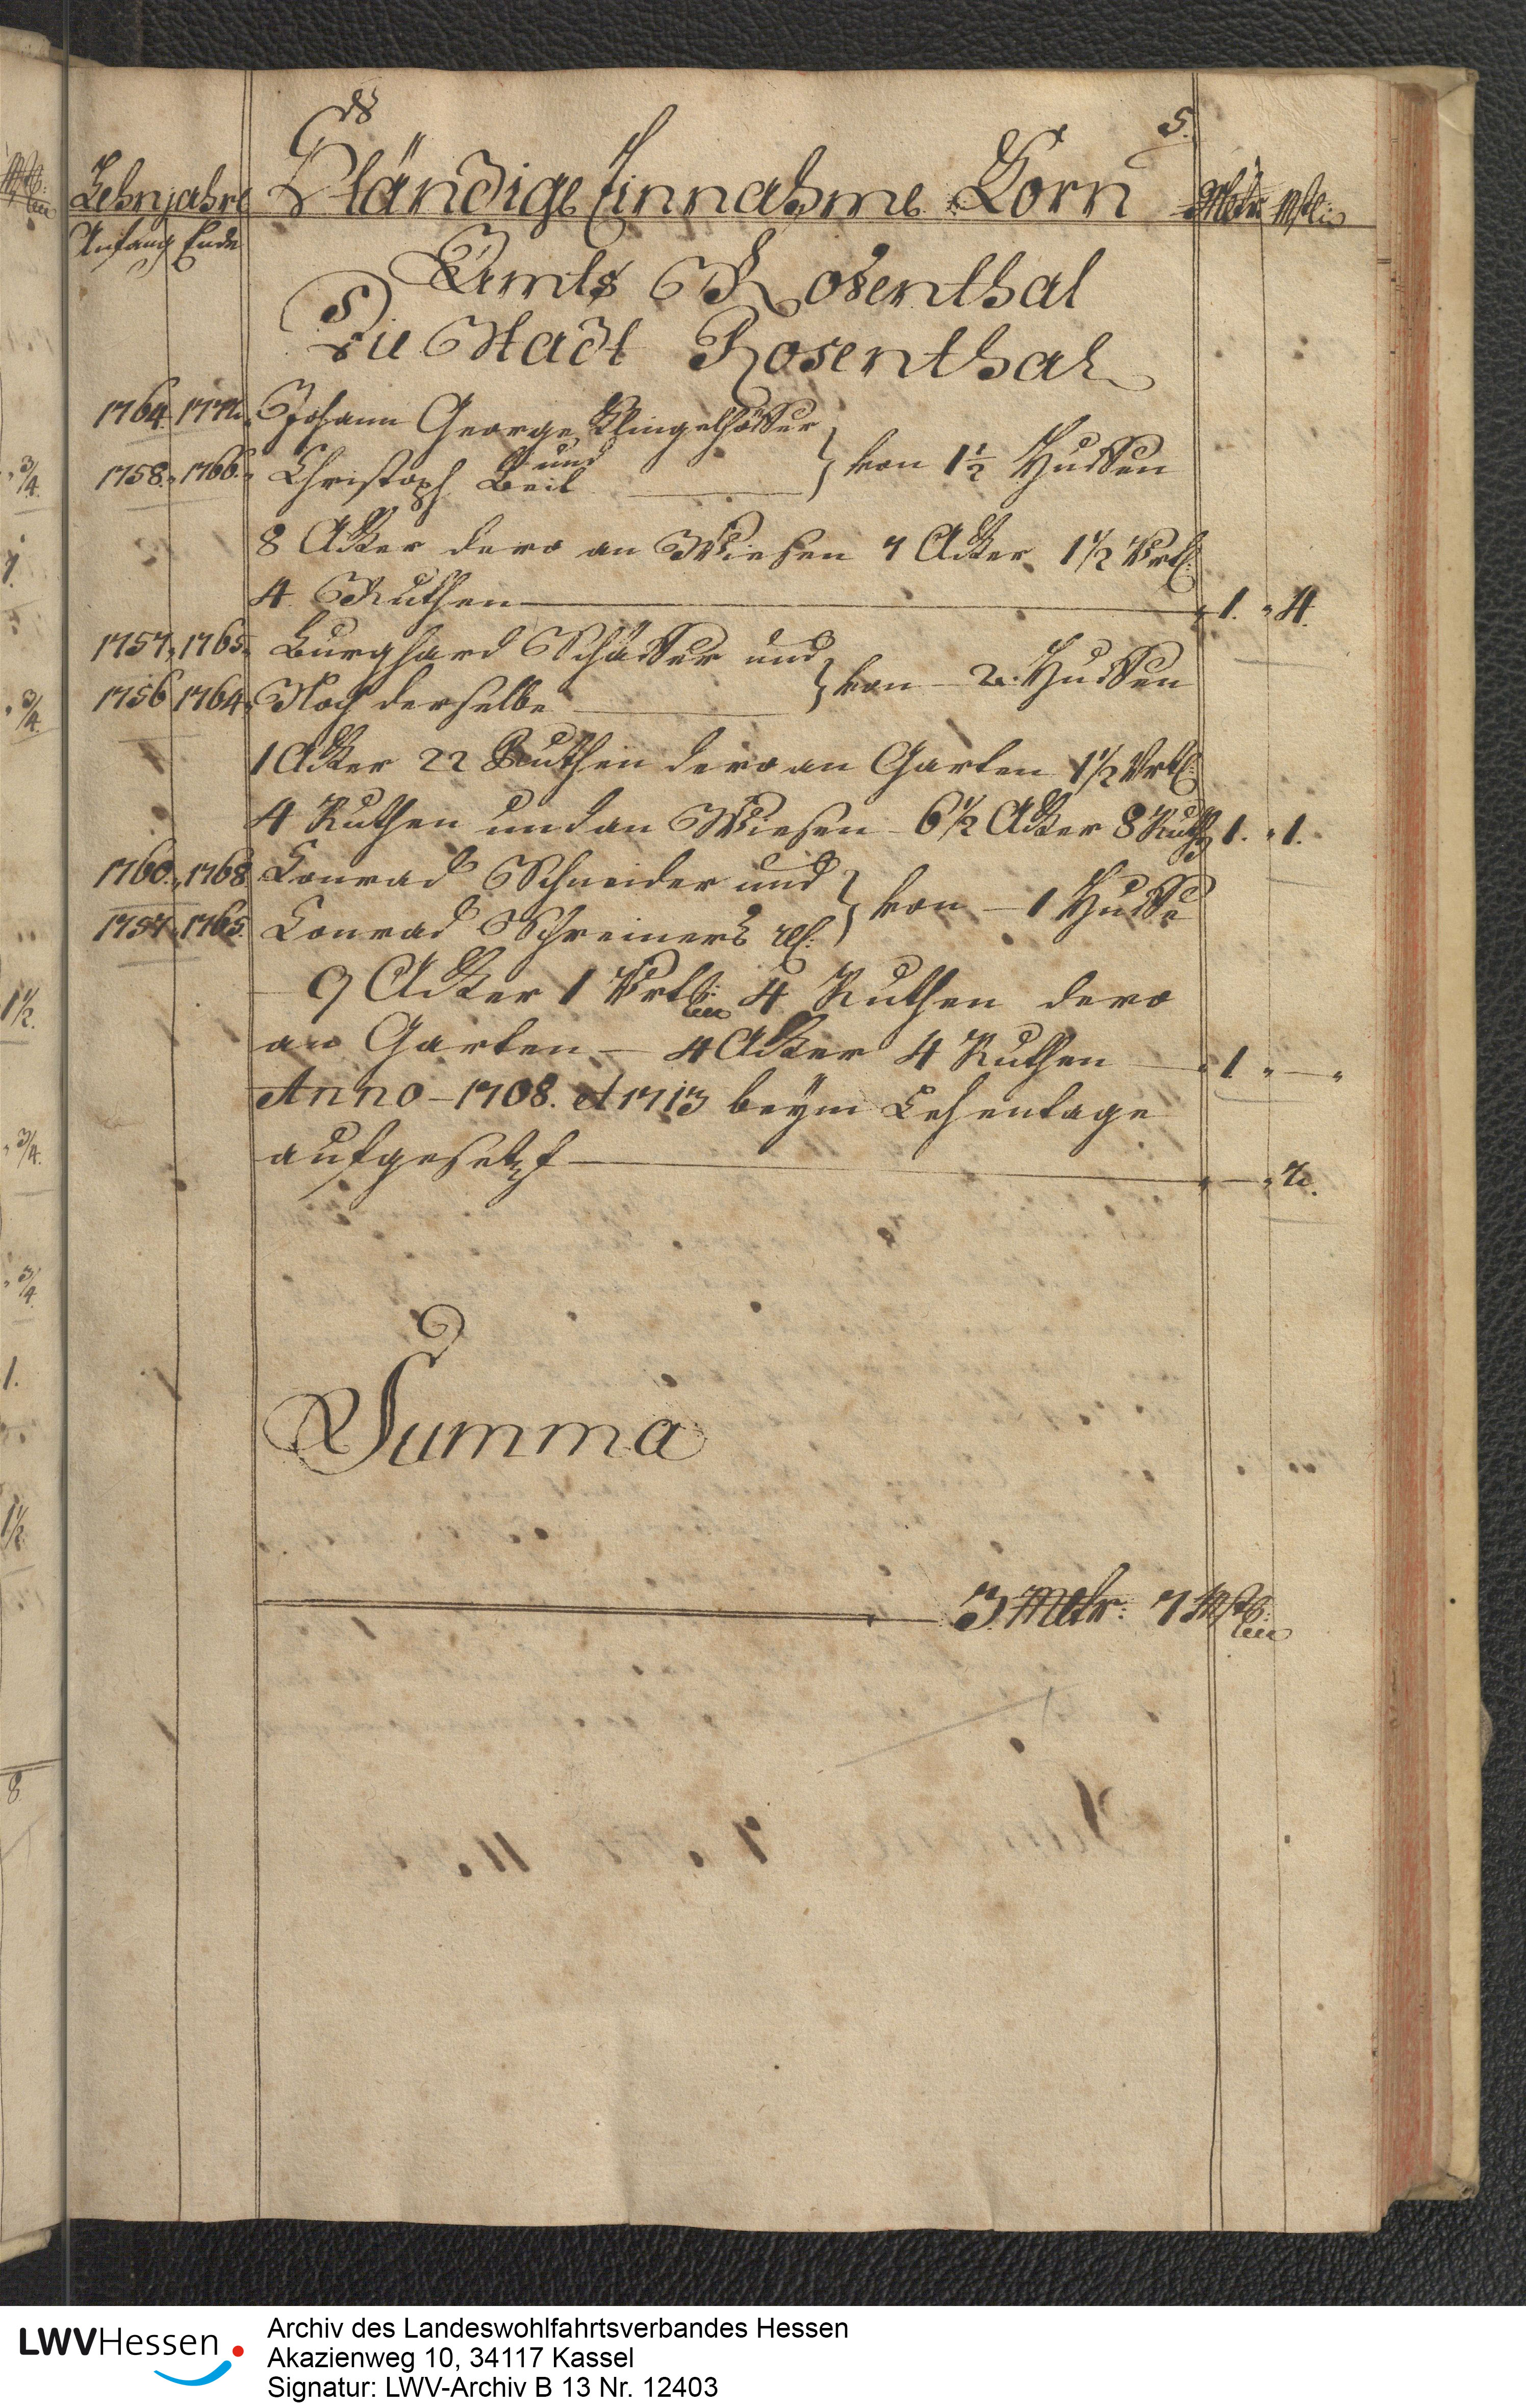 5.
Lehnjahre Ständige Einnahme Korn Mltr. Mst:
Anfang Ende
Amts Rosenthal
Die Stadt Rosenthal
1764. 1772. Johann George Klingelhöffer
und
1758. 1766. Christoph Beil } von 1 1/2 Huffen
8 Acker dero an Wiesen 7 Acker 1 1/2 Vrtl:
4 Ruthen 1. 4.
1757. 1765. Burghard Schäffer und
1756 1764. Noch derselbe } von 2. Huffen
1 Acker 22 Ruthen dero an Garten 1 1/2 Vrtl:
4 Ruthen und an Wiesen 6 1/2 Acker 8 Ruth 1. 1.
1760. 1768 Conrad Schneider und
1757. 1765 Conrad Schreiners rel: } von 1 Huffe
9 Acker 1 Vrtl: 4 Ruthen dero
an Garten 4 Acker 4 Ruthen 1
Anno 1708. et 1713 beym Lehentage
aufgesetzt 2.
Summa
3 Mltr: 7 Mst:
3/4.
3/4.
1 1/2.
3/4.
3/4.
1.
1 1/2.
8
LWVHessen
Archiv des Landeswohlfahrtsverbandes Hessen
Akazienweg 10, 34117 Kassel
Signatur: LWV-Archiv B 13 Nr. 12403